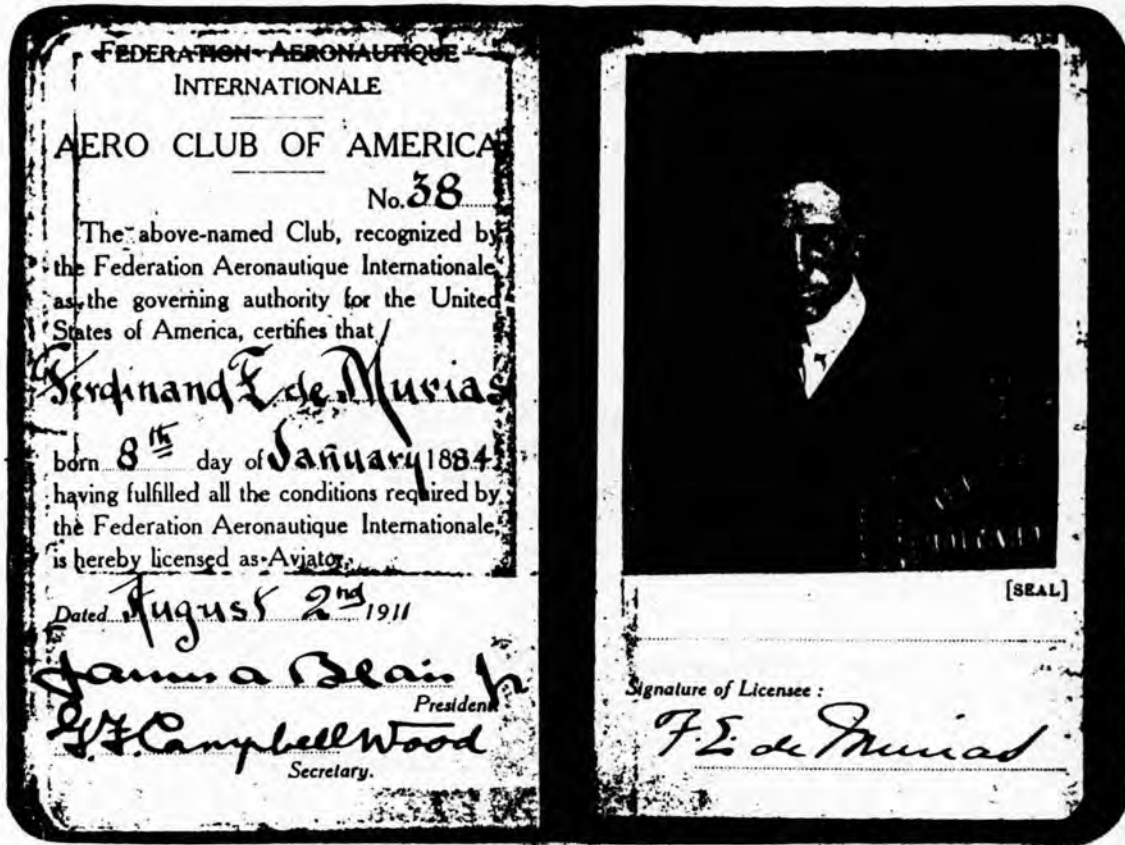 FEDERATION AERONAUTIQUE
INTERNATIONALE
AERO CLUB OF AMERICA
No. 38
The above-named Club, recognized by
the Federation Aeronautique Internationale,
as the governing authority for the United
States of America, certifies that
Ferdinand E de Murias
born 8th day of January 1884
having fulfilled all the conditions required by
the Federation Aeronautique Internationale,
is hereby licensed as Aviator.
Dated August 2nd 1911
James A Blair Jr
President
G. F. Campbell Wood
Secretary.
[SEAL]
Signature of Licensee :
F E de Murias